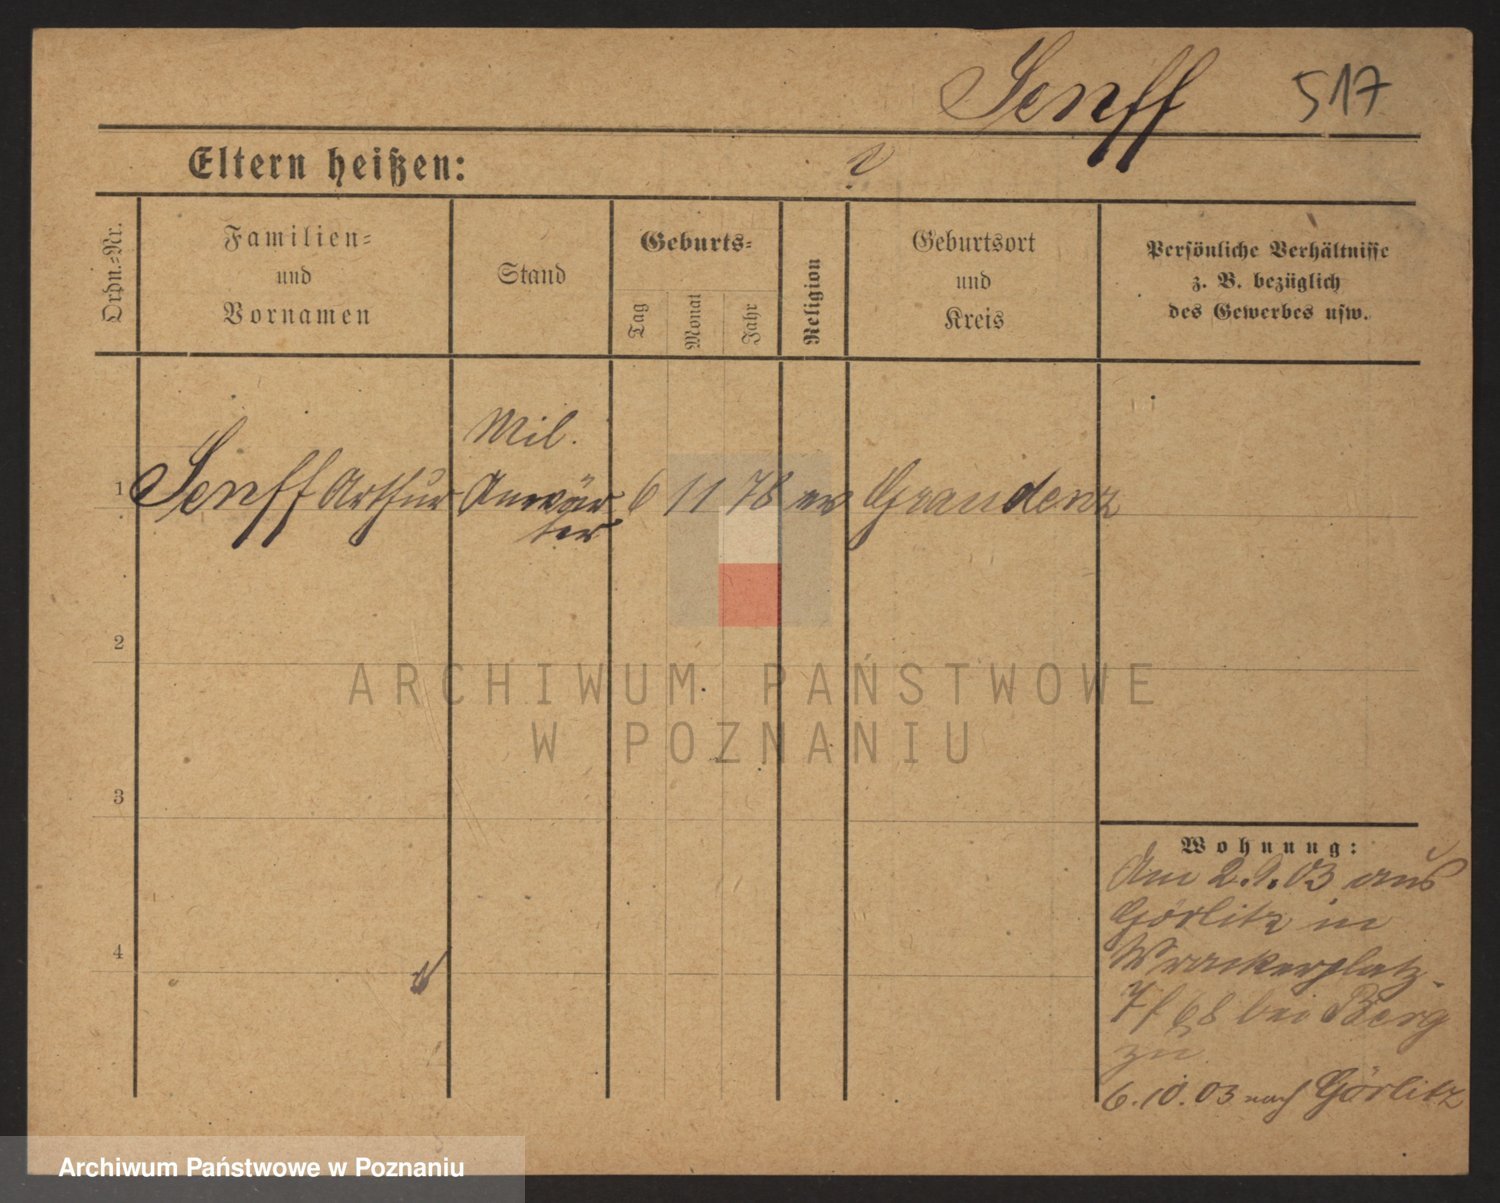 Senff 517
Eltern heißen: ?
Ordn.-Nr.
Familien-
und
Vornamen
Stand
Geburts-
Tag
Monat
Jahr
Religion
Geburtsort
und
Kreis
Persönliche Verhältnisse
z. B. bezüglich
des Gewerbes usw.
Mil.
1 Senff Arthur Anwär 6 11 78 ev Graudenz
ter
2
ARCHIWUM PAŃSTWOWE
W POZNANIU
3
Wohnung:
Am 2.9.03 aus
Görlitz in
4
7/68 bei Berg
zu
6.10.03 nach Görlitz
Archiwum Państwowe w Poznaniu